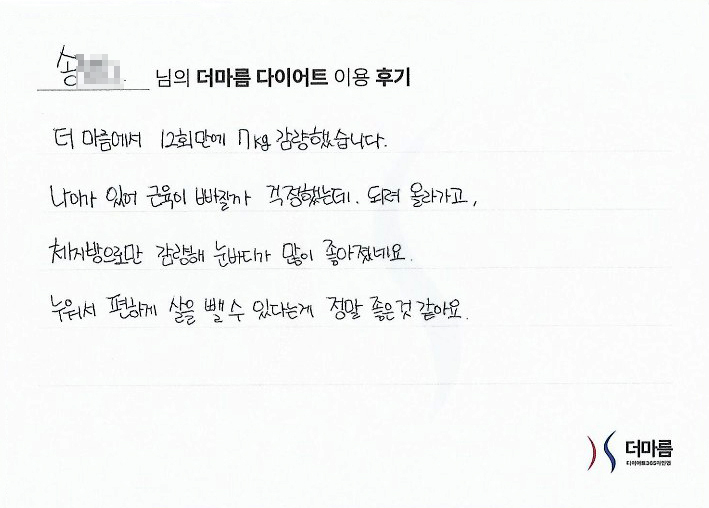 송 님의 더마름 다이어트 이용 후기
더 마름에서 12회만에 7kg 감량했습니다.
나이가 있어 근육이 빠질까 걱정했는데. 되려 올라가고,
체지방으로만 감량해 눈바디가 많이 좋아졌네요.
누워서 편하게 살을 뺄 수 있다는게 정말 좋은것 같아요.
더마름